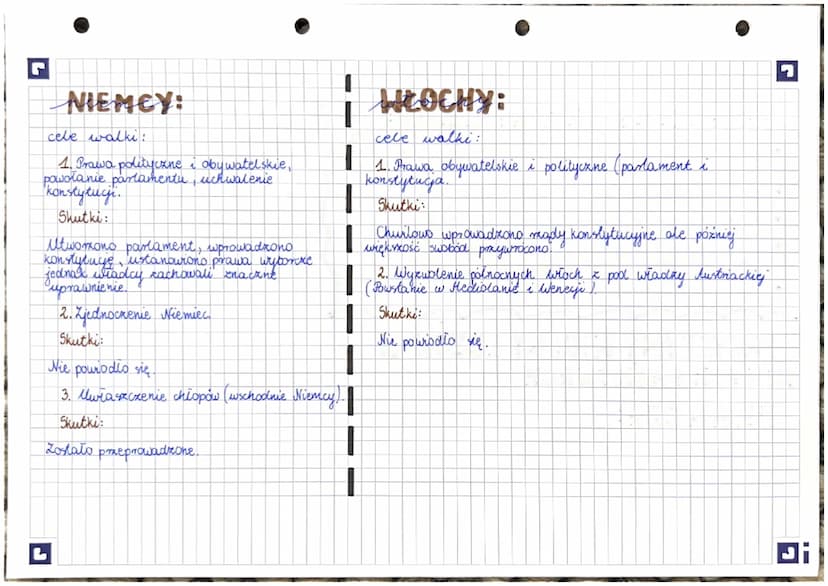 NIEMCY:
cele walki:
1. Prawa polityczne i obywatelskie,
powołanie parlamentu, uchwalenie
konstytucji.
Skutki:
Utworzono parlament, wprowadzono
konstytucję, ustanowiono prawa wyborcze
jednak władcy zachowali znaczne
uprawnienie.
2. Zjednoczenie Niemiec.
Skutki:
Nie powiodło się.
3. Uwłaszczenie chłopów (wschodnie Niemcy).
Skutki:
Zostało przeprowadzone.
WŁOCHY:
cele walki:
1. Prawa obywatelskie i polityczne (parlament i
konstytucja.
Skutki:
Chwilowo wprowadzono rządy konstytucyjne ale później
większość swobód przywrócono.
2. Wyzwolenie północnych Włoch z pod władzy Austriackiej
(Powstanie w Mediolanie i Wenecji).
Skutki:
Nie powiodło się.